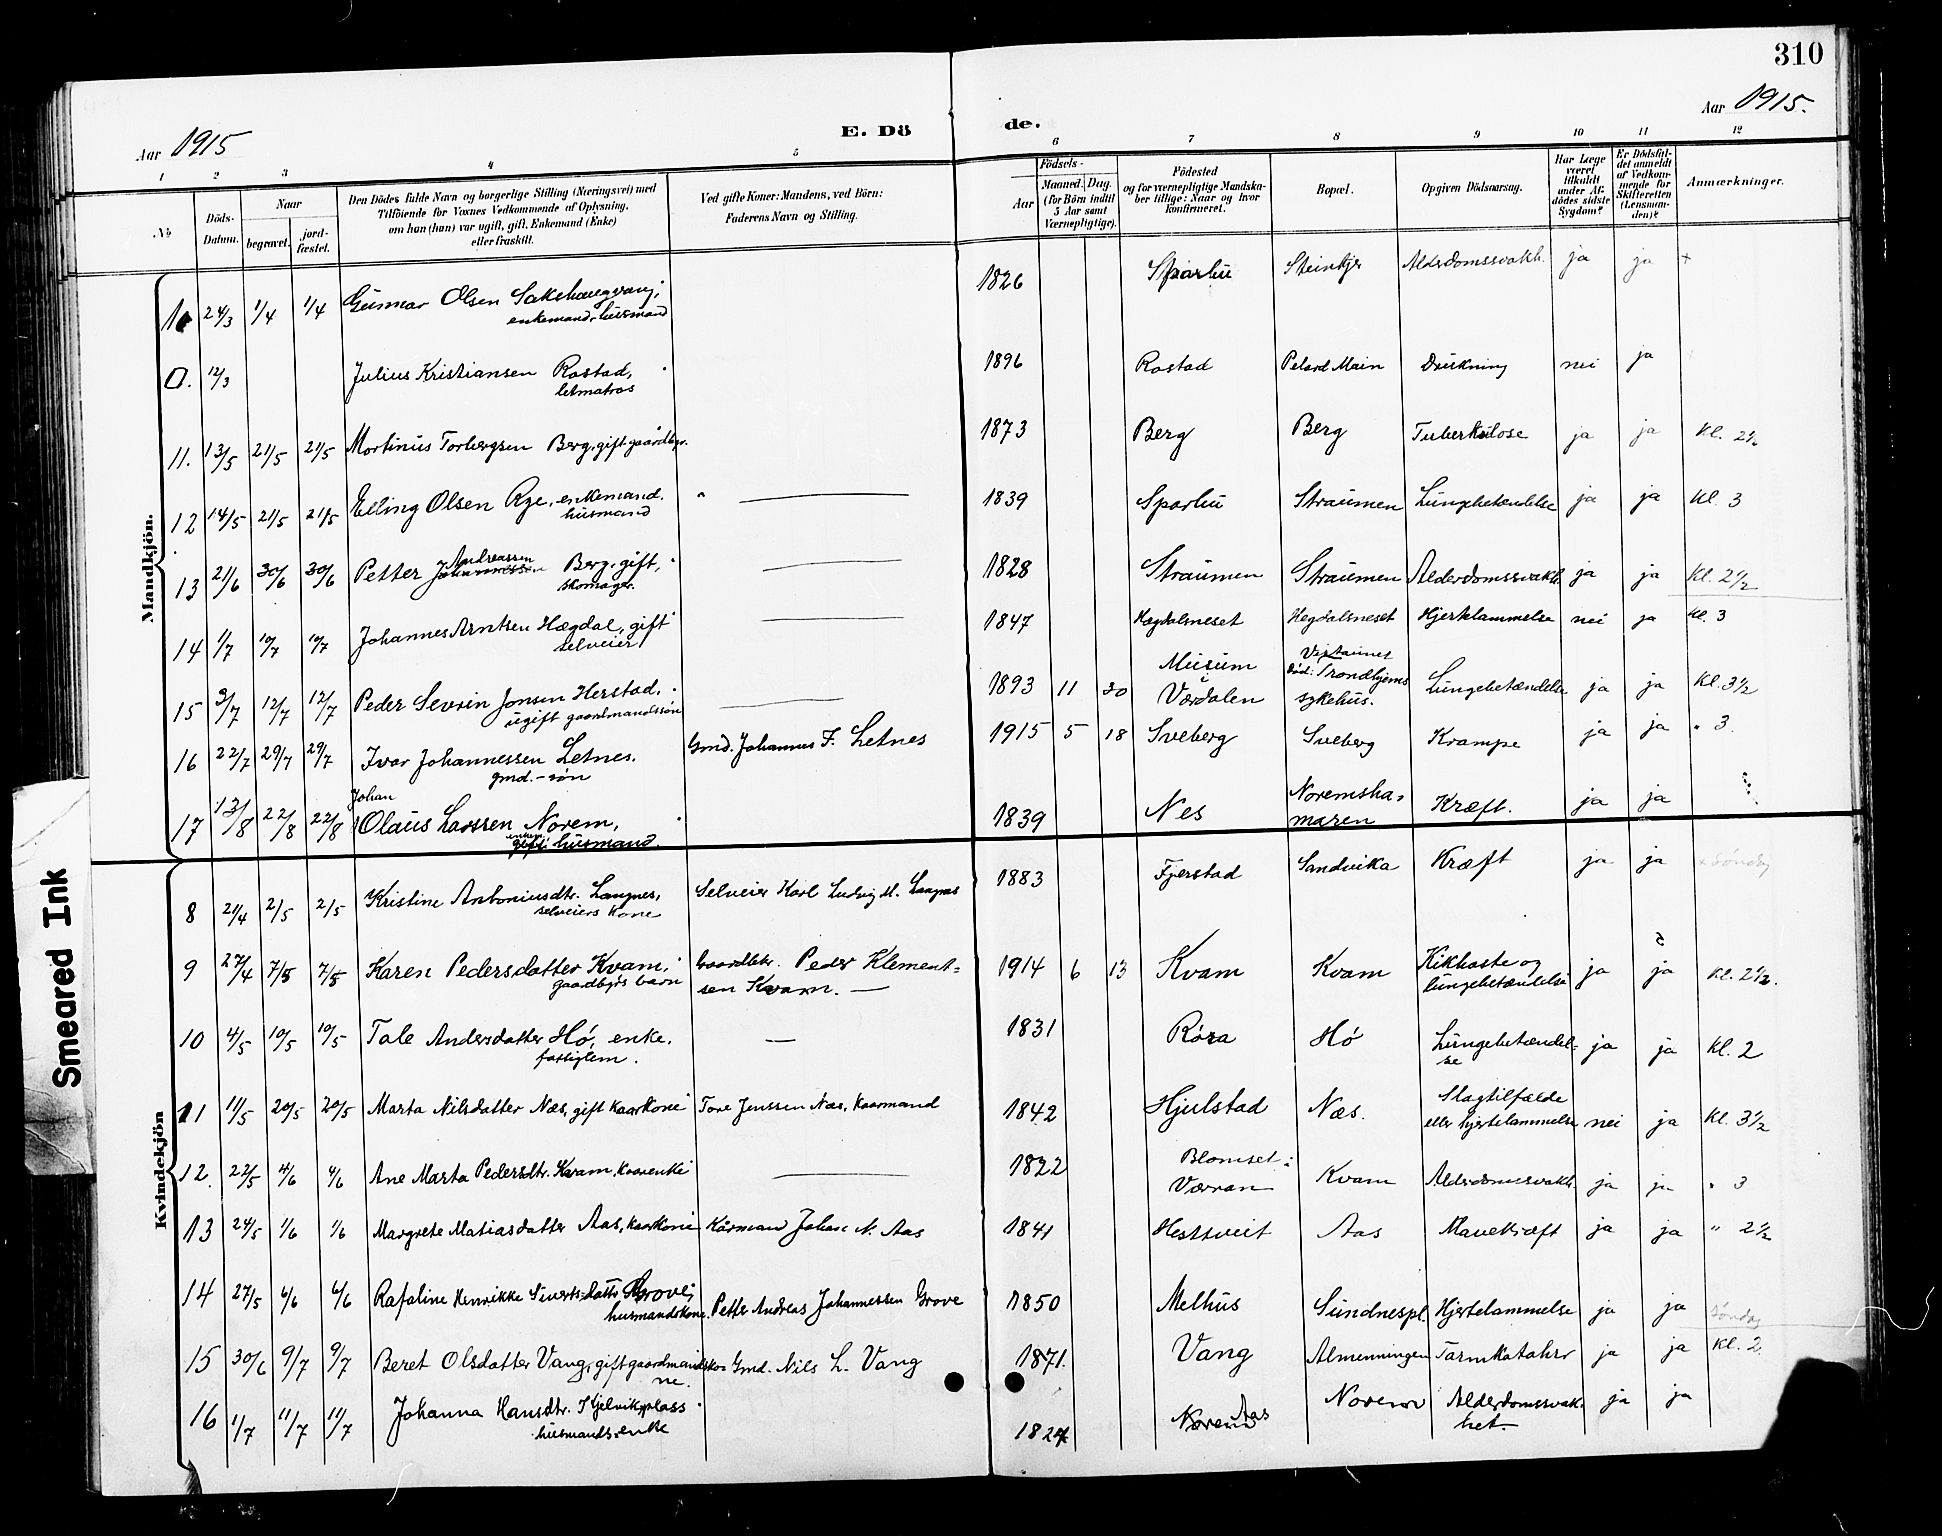 310
Aar 1915
E. Dö
de.
Aar 1915.
1 2 3 4 5 6 7 8 9 10 11 12
№
Döds-Datum.
Naar
begravet.
jord-fæstet.
Den Dödes fulde Navn og borgerlige Stilling (Næringsvei) med
Tilföiende for Voxnes Vedkommende af Oplysning,
om han (hun) var ugift, gift, Enkemand (Enke)
eller fraskilt.
Ved gifte Koner: Mandens, ved Börn:
Faderens Navn og Stilling.
Födsels-
Aar
Maaned. Dag.
(for Börn indtil
5 Aar samt
Værnepligtige).
Födested
og for værnepligtige Mandska-
ber tillige: Naar og hvor
konfirmeret.
Bopæl.
Opgiven Dödsaarsag.
Har Læge
været
tilkaldt
under Af-
dödes sidste
Sygdom?
Er Dödsfal-
det anmeldt
af Vedkom-
mende for
Skifteretten
(Lensman-
den)?
Anmærkninger.
Mandkjön.
24/3 1/4 1/4 Gunnar Olsen Sakshaugvang, 1826 Sparbu Steinkjer Alderdomssvakh. ja ja +
enkemand, husmand
0. 12/3 Julius Kristiansen Rostad, 1896 Rostad Pelard Main Drukning nei ja
letmatros
11. 13/5 21/5 21/5 Martinus Torbergsen Berg, gift gaardbgr. 1873 Berg Berg Tuberkulose ja ja Kl. 2½
12 14/5 21/5 21/5 Elling Olsen Rye, enkemand. 1839 Sparbu Straumen Lungebetændelse ja ja Kl. 3
husmand
Andreassen
13 21/6 30/6 30/6 Petter Johannessen Berg, gift, 1828 Straumen Straumen Alderdomssvakh. ja ja Kl. 2½
skomager.
14 1/7 10/7 10/7 Johannes Arntsen Hægdal, gift 1847 Hægdalsneset Hegdalsneset Hjertelammelse nei ja Kl. 3
selveier
15 3/7 12/7 12/7 Peder Sevrin Jonsen Herstad, 1893 11 20 Musum i Værdalen død: Trondhjems sykehus. Lungebetændelse ja ja Kl. 3½
ugift gaardmandssøn
16 22/7 29/7 29/7 Ivar Johannessen Letnes. Gmd. Johannes F. Letnes 1915 5 18 Sveberg Sveberg Krampe ja ja " 3
gmd.-søn
Johan
17 13/8 22/8 22/8 Olaus Larssen Norem, 1839 Nes Noremsha-maren Kræft. ja ja
enkem.
gift. husmand.
Kvindekjön
8 21/4 2/5 2/5 Kristine Antoniusdtr. Langnes, Selveier Karl Ludvig M. Langnes 1883 Fjerstad Sandvika Kræft ja ja + Søndag
selveiers kone
9 27/4 7/5 7/5 Karen Pedersdatter Kvam, Gaardbr. Peder Klement- 1914 6 13 Kvam Kvam Kikhoste og ja ja Kl. 2½.
gaardbgrs barn sen Kvam. — lungebetændelse
10 4/5 10/5 10/5 Tale Andersdatter Hó, enke, — 1831 Róra Hó Lungebetændel-se ja ja Kl. 2
fattiglem.
11 11/5 20/5 20/5 Marta Nilsdatter Næs, gift kaarkone Tore Jenssen Næs, kaarmand 1842 Hjulstad Næs. Slagtilfælde
eller hjertelammelse nei ja Kl. 3½
12. 22/5 4/6 4/6 Ane Marta Pedersdtr. Kvam, kaarenke 1822 Blomset i Værran Kvam Alderdomssvakh. ja ja " 3
13 24/5 1/6 1/6 Margrete Matiasdatter Aas, kaarkone Kårmand Johan N. Aas 1841 Hestsveit Aas Mavekræft ja ja " 2½
14 27/5 6/6 6/6 Rafaline Henrikke Sivertsdatter Grove, 1850 Melhus Sundnespl. Hjertelammelse ja ja Søndag
husmandskone. Petter Andreas Johannessen Grove
15 30/6 9/7 9/7 Beret Olsdatter Vang, gift gaardmandsko- Gmd. Nils L. Vang 1871. Vang Almenningen Tarmkatahr ja ja Kl. 2
ne.
16 1/7 11/7 11/7 Johanna Hansdtr. Skjelvikplass 1824 Norem Aas Norem Alderdomssvak- ja ja
husmandsenke het.
Smeared Ink